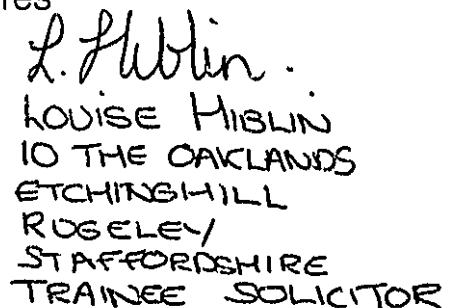 L. Hiblin.
LOUISE HIBLIN
10 THE OAKLANDS
ETCHINGHILL
RUGELEY
STAFFORDSHIRE
TRAINEE SOLICITOR